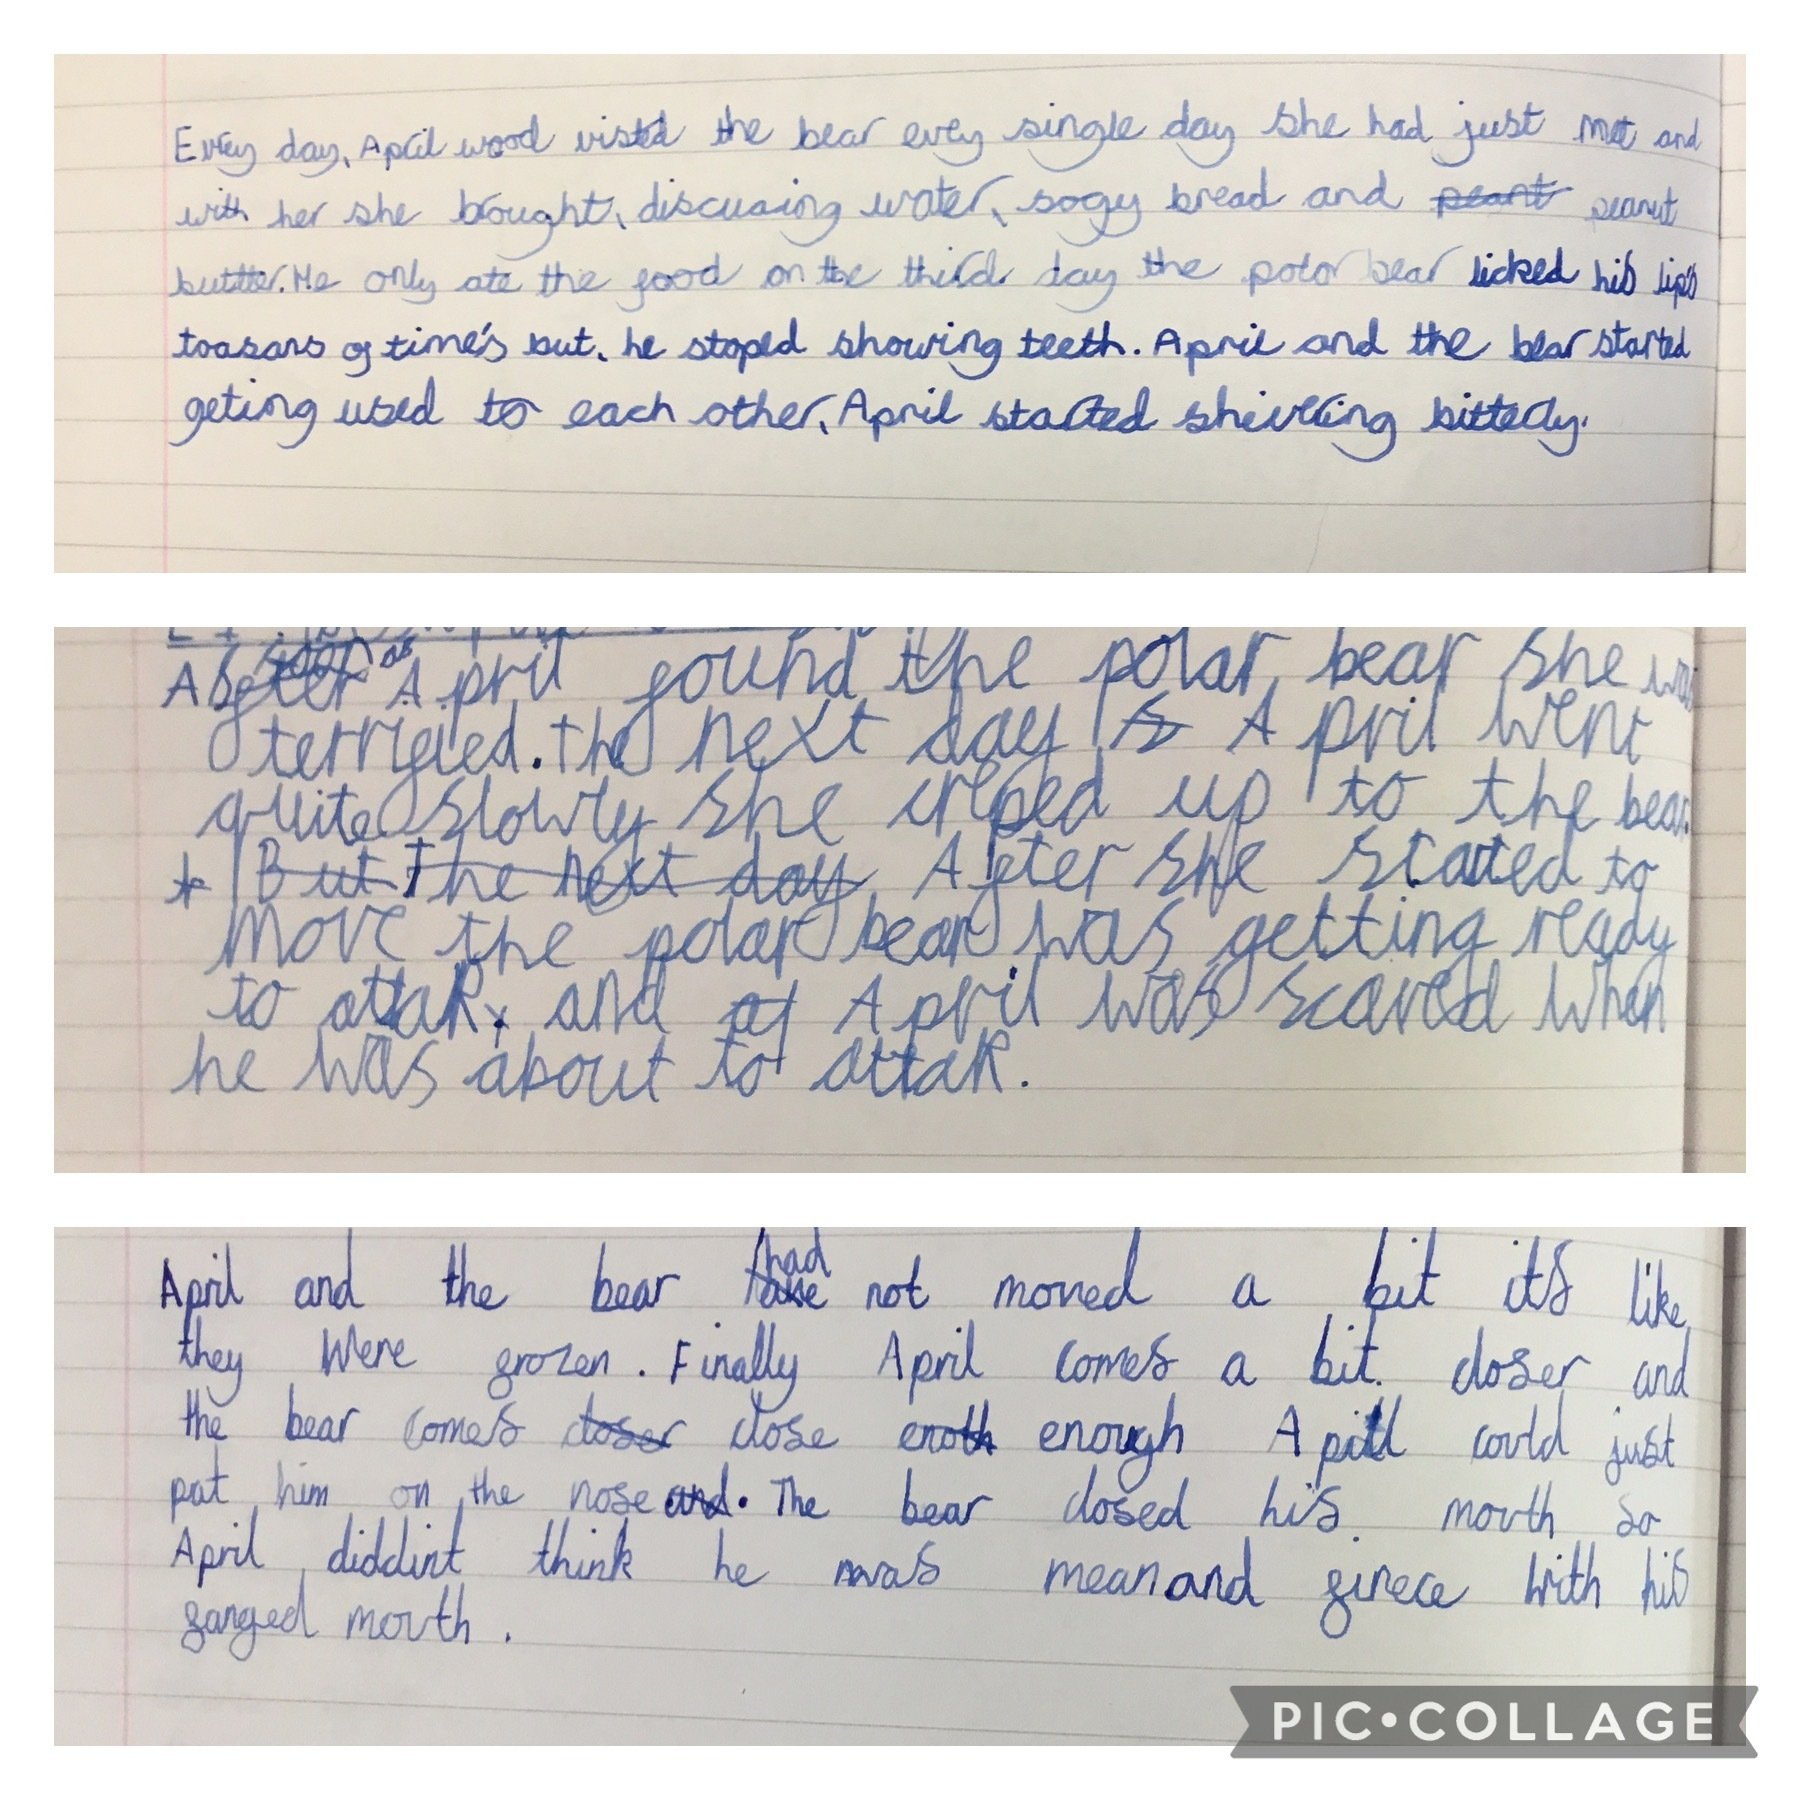 Every day, April wood visted the bear evey single day she had just met and
with her she brought, discusaing water, sogy bread and peanut
buttter. He only ate the food on the third day the polar bear licked his lip's
toasans of time's but, he stoped showing teeth. April and the bear started
geting used to each other, April started sheivering bitterly.
As soon as April found the polar bear she was
terrified. The next day April went
quite slowly she creped up to the bear.
* But The next day After she started to
move the polar bear was getting ready
to attak, and April was scared when
he was about to attak.
April and the bear had not moved a bit it's like
they Were frozen. Finally April comes a bit closer and
the bear comes closer close enoth enough April could just
pat him on the nose and. The bear closed his mouth so
April diddint think he was mean and firece with his
fanged mouth.
PIC•COLLAGE